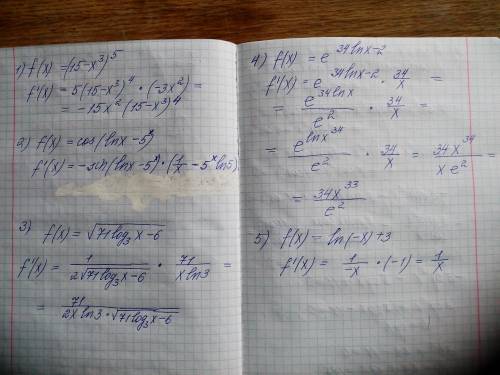 1) f(x) = (15-x³)⁵
f'(x) = 5(15-x³)⁴ · (-3x²) =
= -15x²(15-x³)⁴
2) f(x) = cos(lnx - 5ˣ)
f'(x) = -sin(lnx - 5ˣ) · (1/x - 5ˣ ln5)
3) f(x) = √(71log₃x - 6)
f'(x) = 1/(2√(71log₃x - 6)) · 71/(x ln3) =
= 71/(2x ln3 · √(71log₃x - 6))
4) f(x) = e^(34lnx-2)
f'(x) = e^(34lnx-2) · 34/x =
= e^(34lnx)/e² · 34/x =
= e^(lnx³⁴)/e² · 34/x = 34x³⁴/(x e²) =
= 34x³³/e²
5) f(x) = ln(-x)+3
f'(x) = 1/(-x) · (-1) = 1/x